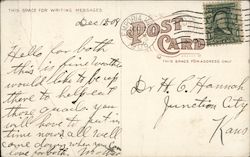 THIS SPACE FOR WRITING MESSAGES
Dec 13-09
POST CARD
THIS SPACE FOR ADDRESS ONLY
Hello for both
this is fine winter
would like to be up
there to help eat
those quails you
will have to put in
time now all well
come down when you can
love for both.
Dr H. C. Hannah
Junction City
Kans